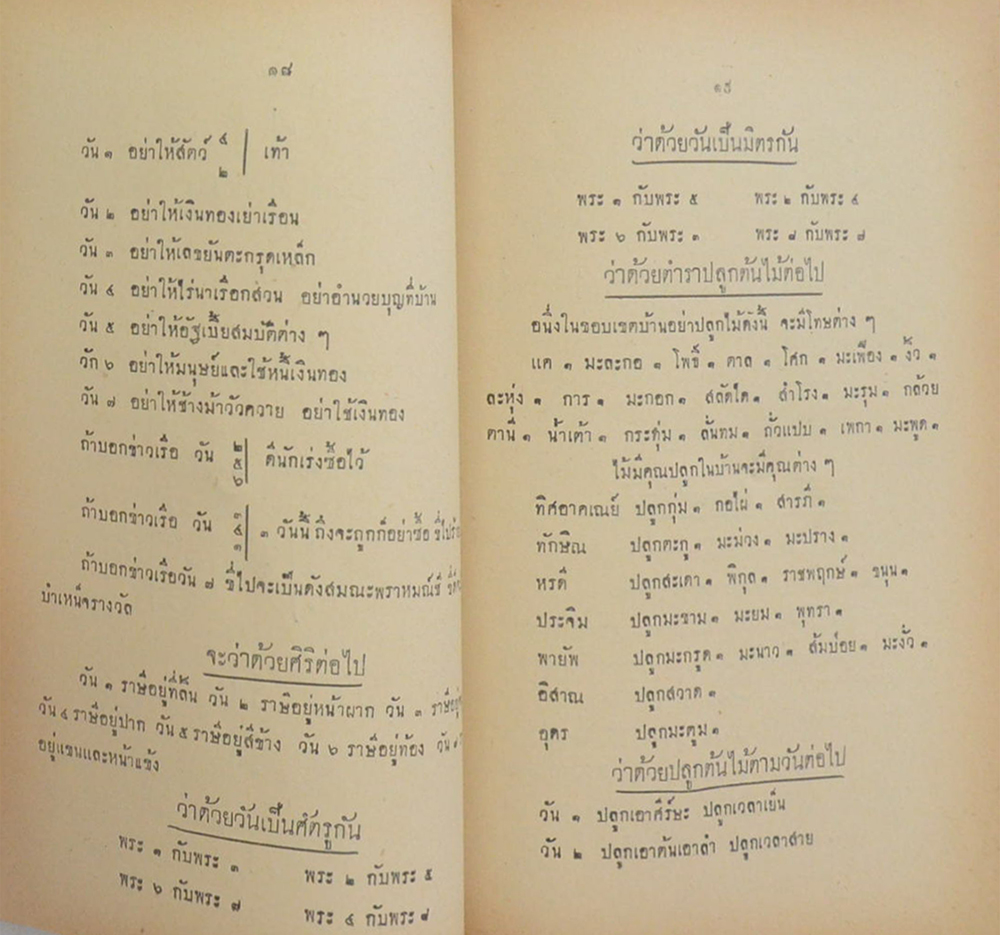 ๑๘
วัน ๑ อย่าให้สัตว์ ๔ ๒ เท้า
วัน ๒ อย่าให้เงินทองเย่าเรือน
วัน ๓ อย่าให้เลขยันตะกรุดเหล็ก
วัน ๔ อย่าให้ไร่นาเรือกสวน อย่าอำนวยบุญที่บ้าน
วัน ๕ อย่าให้อัฐเบี้ยสมบัติต่าง ๆ
วัก ๖ อย่าให้มนุษย์และใช้หนี้เงินทอง
วัน ๗ อย่าให้ช้างม้าวัวควาย อย่าใช้เงินทอง
ถ้าบอกข่าวเรือ วัน ๒ ๕ ๖ ดีนักเร่งซื้อไว้
ถ้าบอกข่าวเรือ วัน ๓ ๔ ๑ ๓ วันนี้ ถึงจะถูกก็อย่าซื้อ
ถ้าบอกข่าวเรือวัน ๗ ขี่ไปจะเป็นดังสมณะพราหมณ์ชี
บำเหน็จรางวัล
จะว่าด้วยศิริต่อไป
วัน ๑ ราษีอยู่ที่ลิ้น วัน ๒ ราษีอยู่หน้าผาก วัน ๓
วัน ๔ ราษีอยู่ปาก วัน ๕ ราษีอยู่สีข้าง วัน ๖ ราษีอยู่ท้อง วัน ๗
อยู่แขนและหน้าแข้ง
ว่าด้วยวันเป็นศัตรูกัน
พระ ๑ กับพระ ๓ พระ ๒ กับพระ ๕
พระ ๖ กับพระ ๗ พระ ๔ กับพระ ๘
๑๙
ว่าด้วยวันเป็นมิตรกัน
พระ ๑ กับพระ ๕ พระ ๒ กับพระ ๔
พระ ๖ กับพระ ๓ พระ ๘ กับพระ ๗
ว่าด้วยตำราปลูกต้นไม้ต่อไป
อนึ่งในขอบเขตบ้านอย่าปลูกไม้ดังนี้ จะมีโทษต่าง ๆ
แค ๑ มะละกอ ๑ โพธิ์ ๑ ตาล ๑ โศก ๑ มะเฟือง ๑ งิ้ว ๑
ละหุ่ง ๑ การ ๑ มะกอก ๑ สลัดใด ๑ สำโรง ๑ มะรุม ๑ กล้วย
ตานี ๑ น้ำเต้า ๑ กระทุ่ม ๑ ลั่นทม ๑ ถั่วแปบ ๑ เพกา ๑ มะพูด ๑
ไม้มีคุณปลูกในบ้านจะมีคุณต่าง ๆ
ทิศอาคเณย์ ปลูกกุ่ม ๑ กอไผ่ ๑ สารภี ๑
ทักษิณ ปลูกตะกู ๑ มะม่วง ๑ มะปราง ๑
หรดี ปลูกสะเดา ๑ พิกุล ๑ ราชพฤกษ์ ๑ ขนุน ๑
ประจิม ปลูกมะขาม ๑ มะยม ๑ พุทรา ๑
พายัพ ปลูกมะกรูด ๑ มะนาว ๑ ส้มป่อย ๑ มะงั่ว ๑
อิสาณ ปลูกสวาด ๑
อุดร ปลูกมะตูม ๑
ว่าด้วยปลูกต้นไม้ตามวันต่อไป
วัน ๑ ปลูกเอาศีร์ษะ ปลูกเวลาเย็น
วัน ๒ ปลูกเอาต้นเอาลำ ปลูกเวลาสาย